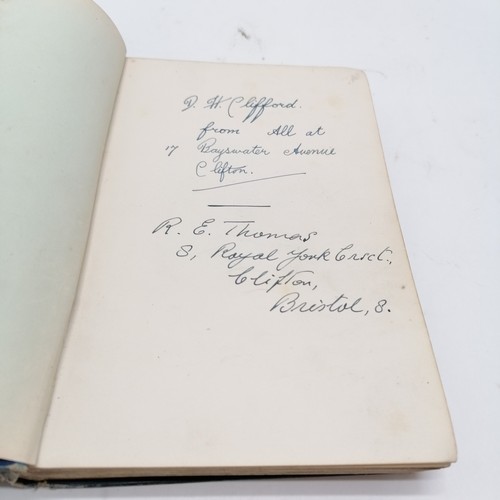 D. W. Clifford.
from All at
17 Bayswater Avenue
Clifton.
R. E. Thomas
8, Royal York Crsct.,
Clifton,
Bristol, 8.